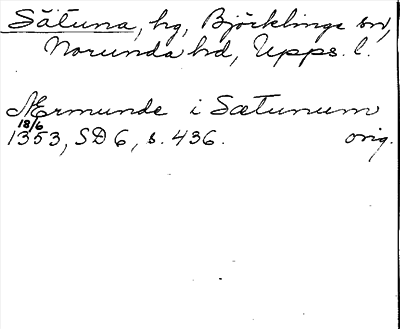 Sätuna, hg, Björklinge sn,
Norunda hd, Upps. l.
Ærmunde i Sætunum
18/6
1353, SD 6, s. 436. orig.